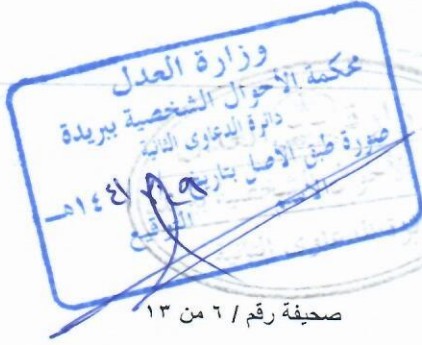 وزارة العدل
محكمة الأحوال الشخصية ببريدة
دائرة الدعاوى الثانية
صورة طبق الأصل بتاريخ ١٤٤١هـ
الاسم
التوقيع
صحيفة رقم / ٦ من ١٣